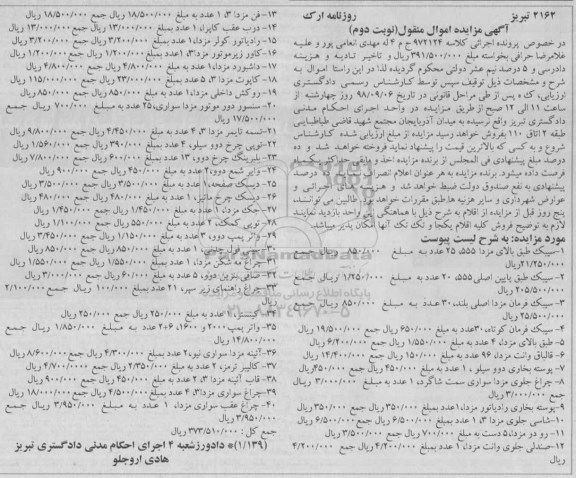 ۲۱۶۲ تبریز روزنامه ارک
آگهی مزایده اموال منقول(نوبت دوم)
در خصوص پرونده اجرائی کلاسه ۹۷۲۱۲۴ ح م ۴ له مهدی نعامی پور و علیه
غلامرضا حرافی بخواسته مبلغ ۳۹۱/۵۰۰/۰۰۰ ریال و تاخیر تادیه و هزینه
دادرسی و ۵ درصد نیم عشر دولتی محکوم گردیده لذا در این راستا اموال به
شرح و مشخصات ذیل توقیف سپس توسط کارشناس رسمی دادگستری
ارزیابی، که پس از طی مراحل قانونی در تاریخ ۹۸/۰۹/۰۶ روز چهارشنبه از
ساعت ۱۱ الی ۱۲ صبح از طریق مزایده در واحد اجرای احکام مدنی
دادگستری تبریز واقع نرسیده به میدان آذربایجان مجتمع شهید قاضی طباطبایی
طبقه ۲ اتاق ۱۱۰ بفروش خواهد رسید مزایده از مبلغ ارزیابی شده کارشناس
شروع و به کسی که بالاترین قیمت را پیشنهاد نماید فروخته خواهد شد و ده
درصد مبلغ پیشنهادی فی المجلس از برنده مزایده اخذ و مابقی حداکثر یکماه
فرصت داده میشود. برنده مزایده به هر عنوان اعلام انصراف درصد
پیشنهادی به نفع صندوق دولت ضبط خواهد شد و هزینه های اجرائی و
عوارض شهرداری و سایر هزینه ها طبق مقررات خواهد بود. طالبین می توانند
پنج روز قبل از مزایده از اقلام به شرح ذیل با هماهنگی این واحد بازدید نمایند
لازم به توضیح فروش کلیه اقلام یکجا و تک تک آنها امکان پذیر میباشد.
مورد مزایده: به شرح لیست پیوست
۱-سیبک طبق بالای مزدا ۵۵۵، ۲۵ عدد به مبلغ ۸۵۰/۰۰۰ ریال جمع
۲۱/۲۵۰/۰۰۰ریال
۲-سیبک طبق پایین اصلی۵۵۵، ۲۰ عدد به مبلغ ۱/۲۵۰/۰۰۰ ریال جمع
ریال
۳-سیبک فرمان مزدا اصلی بلند،۳۰ عدد به مبلغ ۸۵۰/۰۰۰ ریال جمع
۲۵/۵۰۰/۰۰۰ ریال
۴- سیبک فرمان کوتاه، ۳۰عدد به مبلغ ۶۵۰/۰۰۰ ریال جمع ۱۹/۵۰۰/۰۰۰ ریال
۵- طبق بالای مزدا، ۴ عدد به مبلغ ۱/۵۵۰/۰۰۰ ریال جمع ۶/۲۰۰/۰۰۰ ریال
۶- قالپاق وانت مزدا، ۹۶ عدد به مبلغ ۱۵۰/۰۰۰ ریال جمع ۱۴/۴۰۰/۰۰۰ ریال
۷- پوسته بخاری دوو سیلو ، ۱ عدد به مبلغ ۴۵۰/۰۰۰ ریال جمع ۴۵۰/۰۰۰ریال
۸- چراغ جلوی مزدا سواری سمت شاگرد، ۱ عدد به مبلغ ۳/۰۰۰/۰۰۰ ریال
جمع ۳/۰۰۰/۰۰۰ ریال
۹-پوسته بخاری رادیاتور مزدا،۱عدد بمبلغ ۳۵۰/۰۰۰ ریال جمع ۳۵۰/۰۰۰ ریال
۱۰-شاسی جلوی مزدا ۳، ۱ عدد بمبلغ ۶/۵۰۰/۰۰۰ ریال جمع ۶/۵۰۰/۰۰۰ریال
۱۱- رو در مزدا،۵ دست به مبلغ ۷۰۰/۰۰۰ ریال جمع ۳/۵۰۰/۰۰۰ ریال
۱۲-صندلی جلوی وانت مزدا، ۱ عدد بمبلغ ۴/۲۰۰/۰۰۰ ریال جمع ۴/۲۰۰/۰۰۰
ریال
۱۳- فن مزدا ۳، ۱ عدد به مبلغ ۱۸/۵۰۰/۰۰۰ ریال جمع ۱۸/۵۰۰/۰۰۰ ریال
۱۴- درب عقب کاپرا، ۱ عدد به مبلغ ۱۳/۰۰۰/۰۰۰ ریال جمع ۱۳/۰۰۰/۰۰۰ ریال
۱۵- رادیاتور کولر مزدا،۱ عدد بمبلغ ۳/۲۰۰/۰۰۰ ریال جمع ۳/۲۰۰/۰۰۰ ریال
۱۶-کاور زیرموتور مزدا۳، ۱عدد بمبلغ ۱/۲۰۰/۰۰۰ ریال جمع ۱/۲۰۰/۰۰۰ ریال
۱۷- داشبورد مزدا، ۱ عدد به مبلغ ۴/۸۰۰/۰۰۰ ریال جمع ۴/۸۰۰/۰۰۰ ریال
۱۸- کاپوت مزدا ۳، ۵ عدد بمبلغ ۲۳/۰۰۰/۰۰۰ ریال جمع ۱۱۵/۰۰۰/۰۰۰ ریال
۱۹- رو کش داخلی مزدا، ۱ عدد به مبلغ ۸۵۰/۰۰۰ ریال جمع ۸۵۰/۰۰۰ ریال
۲۰-سنسور دور موتور مزدا سواری،۲۵ عدد به مبلغ ۷۰۰/۰۰۰ ریال جمع
۱۷/۵۰۰/۰۰۰ ریال
۲۱-تسمه تایمر مزدا ۳، ۴ عدد به مبلغ ۴/۴۵۰/۰۰۰ ریال جمع ۹/۸۰۰/۰۰۰ ریال
۲۲-توپی چرخ دوو سیلو، ۴ عدد بمبلغ ۳۹۰/۰۰۰ ریال جمع ۱/۵۶۰/۰۰۰ ریال
۲۳- بلبرینگ چرخ دوو، ۱۳ عدد بمبلغ ۶۰۰/۰۰۰ ریال جمع ۷/۸۰۰/۰۰۰ ریال
۲۴-وایر شمع دوو،۲ عدد به مبلغ ۴۵۰/۰۰۰ ریال جمع ۹۰۰/۰۰۰ ریال
۲۵-دیسک صفحه،۱ عدد به مبلغ ۳/۵۰۰/۰۰۰ ریال جمع ۳/۵۰۰/۰۰۰ ریال
۲۶-دیسک چرخ ماتیز، ۱ عدد به مبلغ ۴۸۰/۰۰۰ ریال جمع ۴۸۰/۰۰۰ ریال
۲۷-جک مزدا، ۱ عدد به مبلغ ۱/۴۵۰/۰۰۰ ریال جمع ۱/۴۵۰/۰۰۰ ریال
۲۸-توپی کمک، ۲ عدد به مبلغ ۵۵۰/۰۰۰ ریال جمع ۱/۱۰۰/۰۰۰ ریال
۲۹-واتر پمپ دوو، ۳ عدد به مبلغ ۱/۱۵۰/۰۰۰ ریال جمع ۳/۴۵۰/۰۰۰ ریال
جمع ۸۵۰/۰۰۰ ریال
مزدا، ۱ عدد بمبلغ ۱/۵۵۰/۰۰۰ ریال جمع ۱/۵۵۰/۰۰۰ ریال
۳۲-صافی بنزین دوو، ۵ عدد به مبلغ ۶۰/۰۰۰ ریال جمع ۳۰۰/۰۰۰ ریال
۳۳-چراغ راهنمای زیر سپر، ۲۱ عدد بمبلغ ۱۰۰/۰۰۰ ریال جمع ۲/۱۰۰/۰۰۰
ریال
۱ عدد به مبلغ ۲۵۰/۰۰۰ ریال جمع ۲۵۰/۰۰۰ ریال
۳۵-واتر پمپ۲۰۰۰ و ۱۶۰۰، ۲+۶ عدد به مبلغ ۱/۸۵۰/۰۰۰ ریال جمع
۱۴/۸۰۰/۰۰۰ ریال
۳۶-آئینه مزدا سواری نیو،۲ عدد بمبلغ ۴/۳۰۰/۰۰۰ ریال جمع۸/۶۰۰/۰۰۰ ریال
۳۷-کالیپر ترمز، ۲ عدد به مبلغ ۲/۳۵۰/۰۰۰ ریال جمع ۴/۷۰۰/۰۰۰ ریال
۳۸- قاب آئینه مزدا ۳، ۲ عدد به مبلغ ۴۵۰/۰۰۰ ریال جمع ۹۰۰/۰۰۰ ریال
۳۹-چراغ سواری مزدا۳، ۴ عدد بمبلغ ۴/۵۰۰/۰۰۰ ریال جمع ۱۸/۰۰۰/۰۰۰ ریال
۴۰-چراغ عقب سواری مزدا، ۱ عدد به مبلغ ۳/۹۵۰/۰۰۰ ریال جمع
۳/۹۵۰/۰۰۰ ریال
جمع کل : ۳۷۳/۵۱۰/۰۰۰ ریال
(۱/۱۳۹)* دادورزشعبه ۴ اجرای احکام مدنی دادگستری تبریز
هادی اروجلو